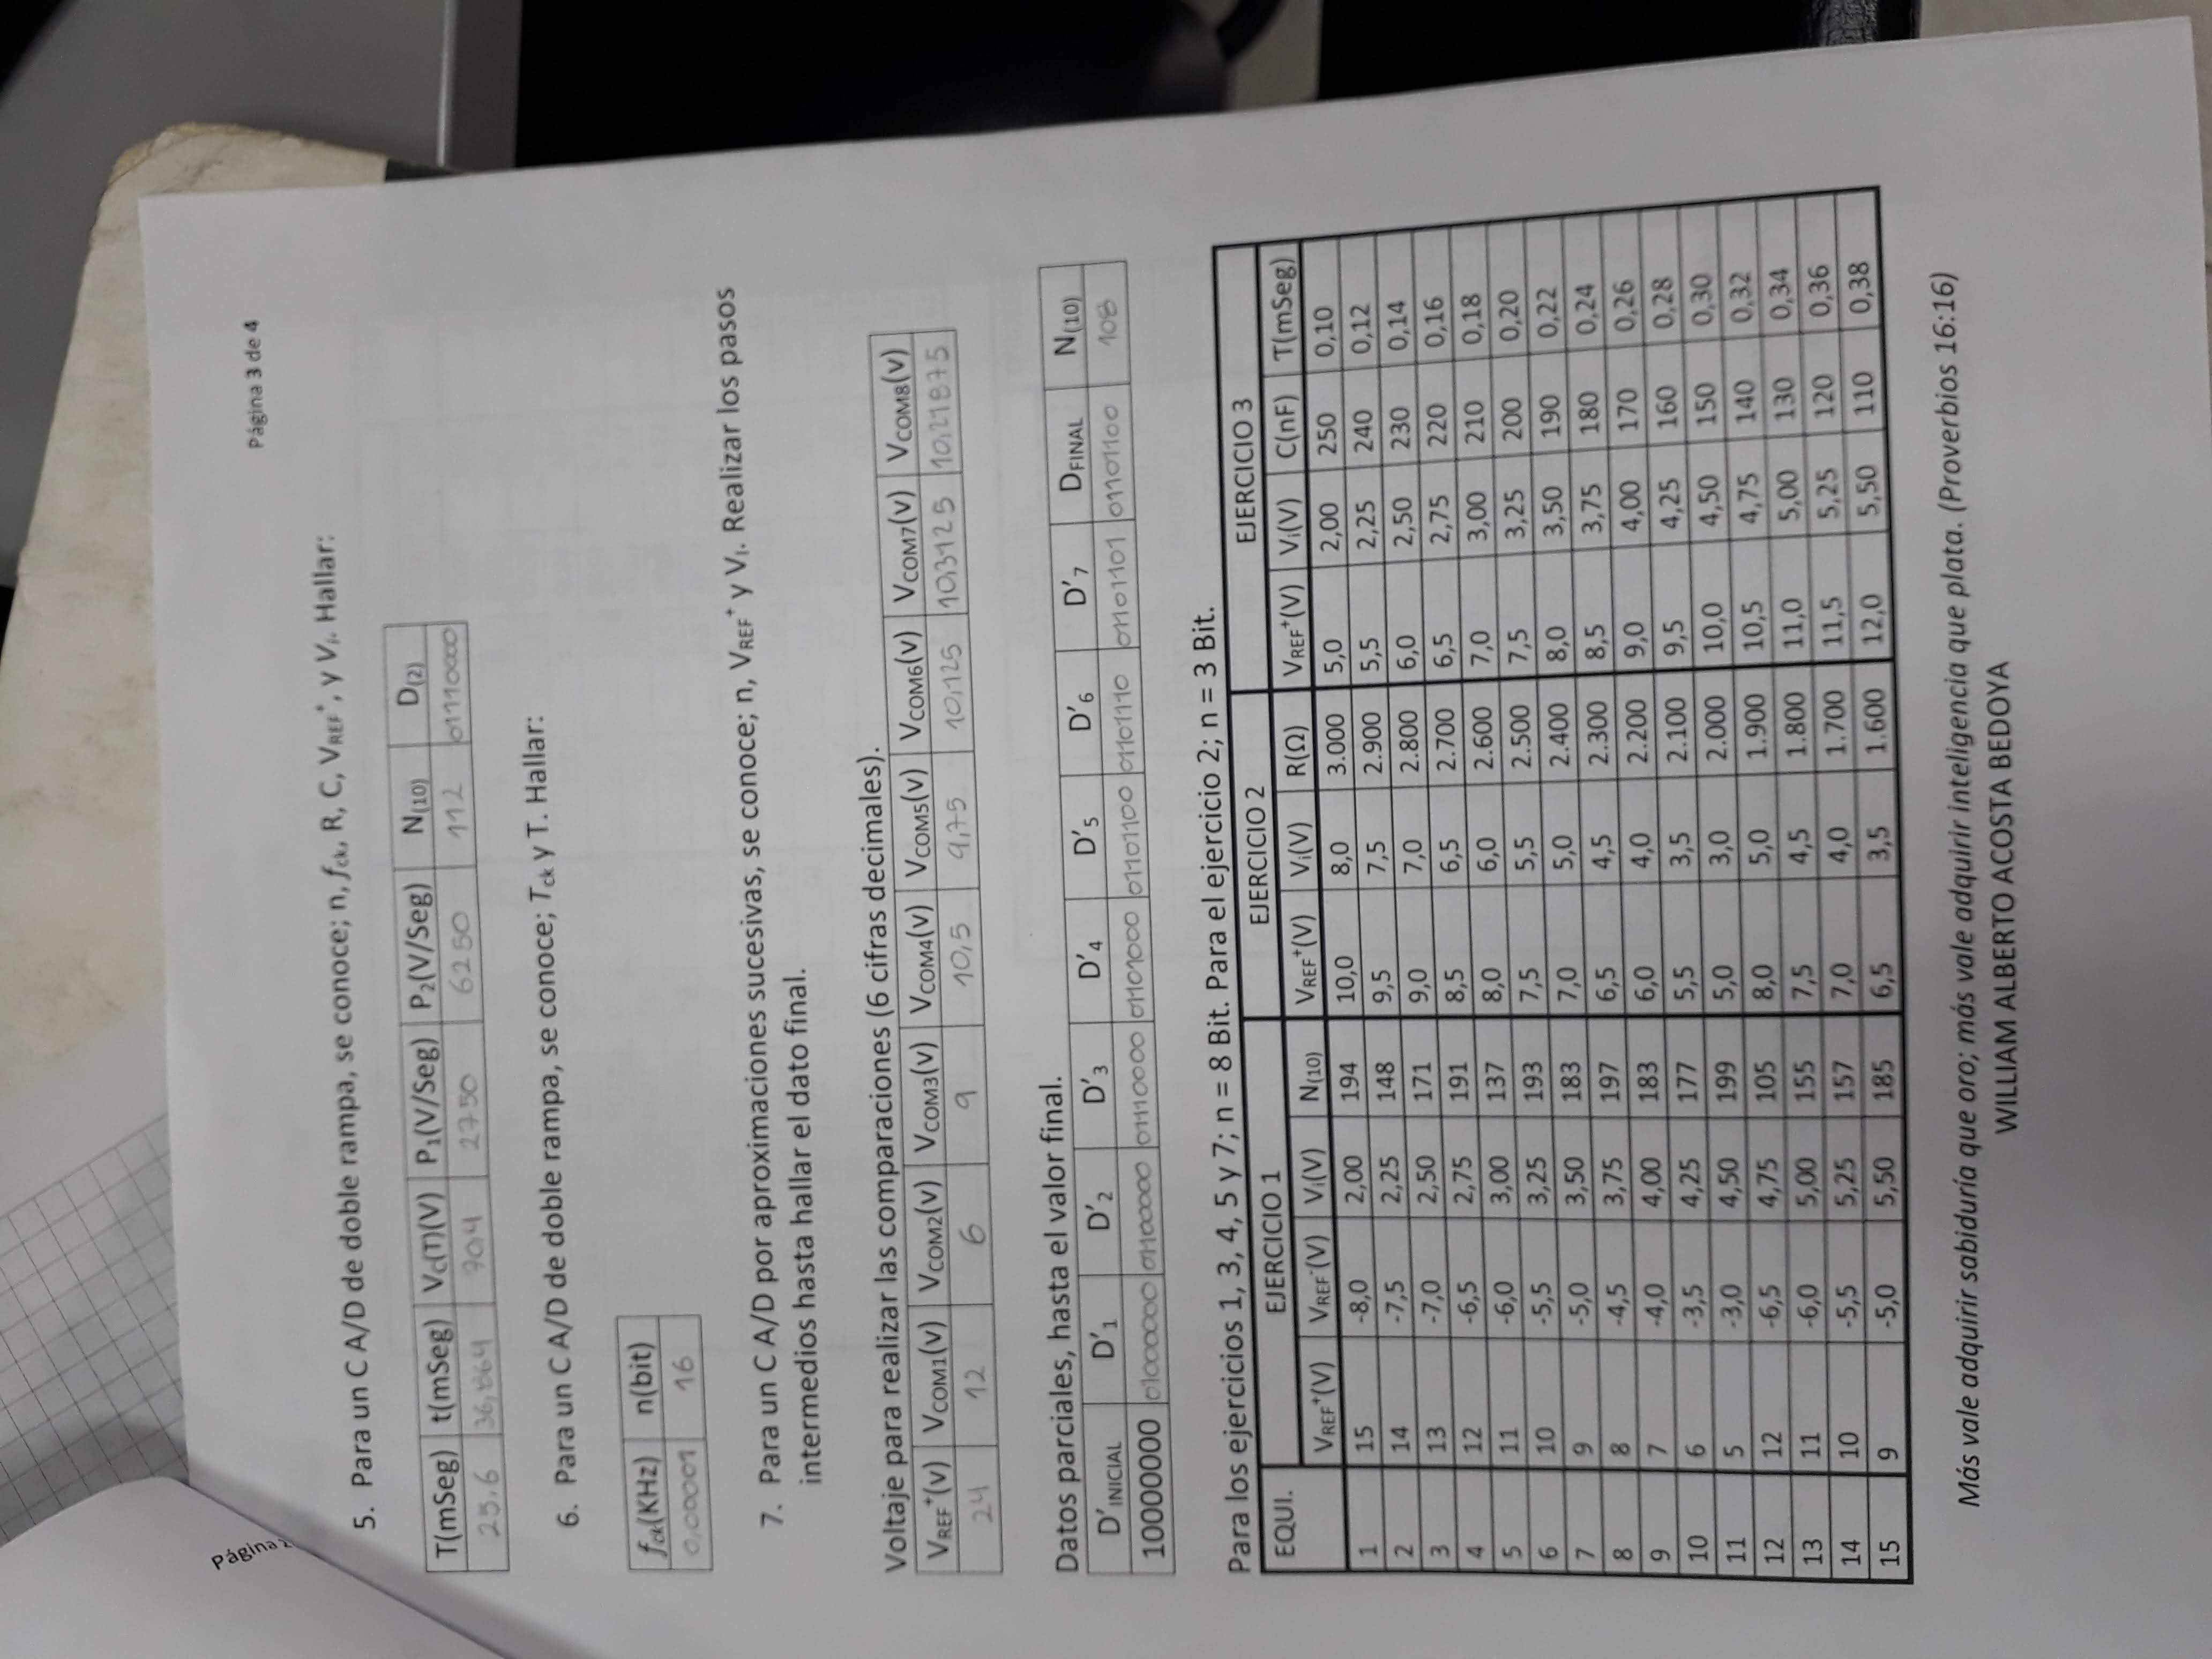 Página 2
Página 3 de 4
5. Para un C A/D de doble rampa, se conoce; n, fck, R, C, VREF+, y Vi. Hallar:
T(mSeg) t(mSeg) VC(T)(V) P1(V/Seg) P2(V/Seg) N(10) D(2)
25,6 36,864 70,4 2750 6250 112 01110000
6. Para un C A/D de doble rampa, se conoce; Tck y T. Hallar:
fck(KHz) n(bit)
0,00001 16
7. Para un C A/D por aproximaciones sucesivas, se conoce; n, VREF+ y VI. Realizar los pasos
intermedios hasta hallar el dato final.
Voltaje para realizar las comparaciones (6 cifras decimales).
VREF+(v) VCOM1(v) VCOM2(v) VCOM3(v) VCOM4(v) VCOM5(v) VCOM6(v) VCOM7(v) VCOM8(v)
24 12 6 9 10,5 9,75 10,125 10,3125 10,21875
Datos parciales, hasta el valor final.
D'INICIAL D'1 D'2 D'3 D'4 D'5 D'6 D'7 DFINAL N(10)
10000000 01000000 01100000 01110000 01101000 01101100 01101110 01101101 01101100 108
Para los ejercicios 1, 3, 4, 5 y 7; n = 8 Bit. Para el ejercicio 2; n = 3 Bit.
EQUI. EJERCICIO 1 EJERCICIO 2 EJERCICIO 3
VREF+(V) VREF-(V) Vi(V) N(10) VREF+(V) Vi(V) R(Ω) VREF+(V) Vi(V) C(nF) T(mSeg)
1 15 -8,0 2,00 194 10,0 8,0 3.000 5,0 2,00 250 0,10
2 14 -7,5 2,25 148 9,5 7,5 2.900 5,5 2,25 240 0,12
3 13 -7,0 2,50 171 9,0 7,0 2.800 6,0 2,50 230 0,14
4 12 -6,5 2,75 191 8,5 6,5 2.700 6,5 2,75 220 0,16
5 11 -6,0 3,00 137 8,0 6,0 2.600 7,0 3,00 210 0,18
6 10 -5,5 3,25 193 7,5 5,5 2.500 7,5 3,25 200 0,20
7 9 -5,0 3,50 183 7,0 5,0 2.400 8,0 3,50 190 0,22
8 8 -4,5 3,75 197 6,5 4,5 2.300 8,5 3,75 180 0,24
9 7 -4,0 4,00 183 6,0 4,0 2.200 9,0 4,00 170 0,26
10 6 -3,5 4,25 177 5,5 3,5 2.100 9,5 4,25 160 0,28
11 5 -3,0 4,50 199 5,0 3,0 2.000 10,0 4,50 150 0,30
12 12 -6,5 4,75 105 8,0 5,0 1.900 10,5 4,75 140 0,32
13 11 -6,0 5,00 155 7,5 4,5 1.800 11,0 5,00 130 0,34
14 10 -5,5 5,25 157 7,0 4,0 1.700 11,5 5,25 120 0,36
15 9 -5,0 5,50 185 6,5 3,5 1.600 12,0 5,50 110 0,38
Más vale adquirir sabiduría que oro; más vale adquirir inteligencia que plata. (Proverbios 16:16)
WILLIAM ALBERTO ACOSTA BEDOYA